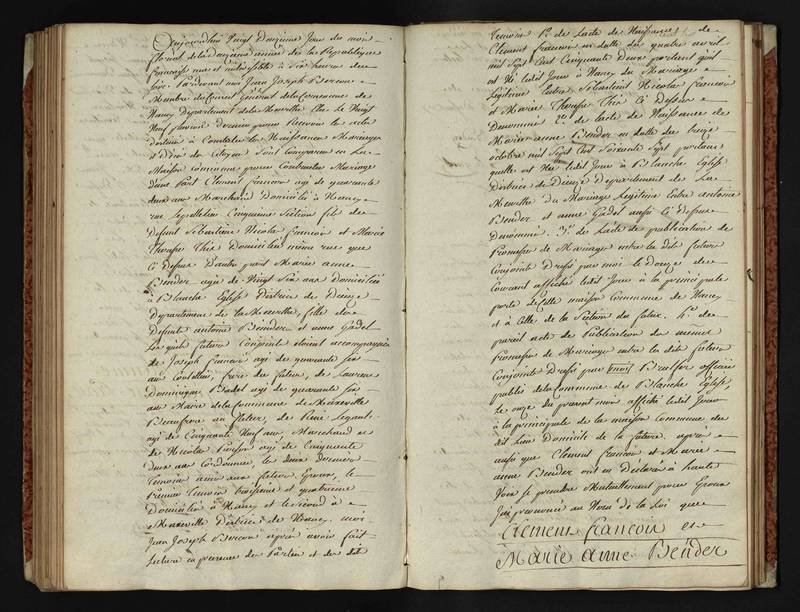 Aujourd'hui Vingt Deuzieme Jour du mois
floreal de la Deuxieme année de la Republique
francaise une et indivisible à Six heures du
soir Pardevant moi Jean Joseph
Membre du Conseil Général de la Commune de
Nancy Departement de la Meurthe Elu le Vingt
Neuf dernier pour Recevoir les actes
destinés à Constater les Naissances Mariages
et Décès des Citoyens Sont Comparus en La
Maison Commune pour Contracter Mariage
dune Part Clement francois agé de quarante
deux ans Marchand Domicilié à Nancy
rue Cinquieme Section fils de
Defunt Sébastien Nicolas francois et Marie
Therese Domiciliés même rue que
Ci dessus D'autre part Marie anne
Bender agée de Vingt Six ans Domiciliée
à Blanche Eglise District de Dieuze
Departement de la Meurthe, fille de
Defunt antoine Bender et anne Gadel
Lesquels futurs Conjoints étoient accompagnés
de Joseph francois agé de quarante
ans Coutellier, frere du futur, de Laurent
Dominique agé de quarante
ans Maire de la Commune de Maxeville
Beaufrere au futur, de René
agé de Cinquante Neuf ans, Marchand et
de Nicolas agé de Cinquante
deux ans Cordonnier, les deux derniers
temoins amis aux futurs Epoux, le
Premier temoin troisieme et quatrieme
Domiciliés à Nancy et le second à
Maxeville District de Nancy. moi
Jean Joseph après avoir fait
Lecture en presence des Parties et des dits
temoins 1º. de l'acte de Naissance de
Clement francois en datte du quatre avril
mil Sept Cent Cinquante Deux portant quil
est Né ledit Jour à Nancy du Mariage
Legitime entre Sébastien Nicolas francois
et Marie Therese Ci Dessus
Denommés 2º. de l'acte de Naissance de
Marie anne Bender en datte du treize
octobre mil Sept Cent Soixante Sept portant
quelle est Née ledit Jour à Blanche Eglise
District de Dieuze Departement de La
Meurthe du Mariage Legitime Entre antoine
Bender et anne Gadel aussi Ci dessus
Denommés. 3º. de L'acte de publication de
Promesse de Mariage entre les dits futurs
Conjoints Dressé par moi le Douze de
Courant affiché ledit Jour à la principale
porte de cette maison Commune de Nancy
et à Celle de la Section du futur. 4º. de
pareil acte de Publication de mêmes
Promesse de Mariage entre les dits futurs
Conjoints Dressé par officier
public de la Commune de Blanche Eglise,
le onze du present mois affiché ledit Jour
à la principale de la maison Commune du
dit lieu Domicile de la future. après
aussi que Clement francois et Marie
anne Bender ont eu Déclaré à haute
Voix se prendre Mutuellement pour Epoux
Jai prononcé au Nom de la Loi que
Clement francois et
Marie anne Bender